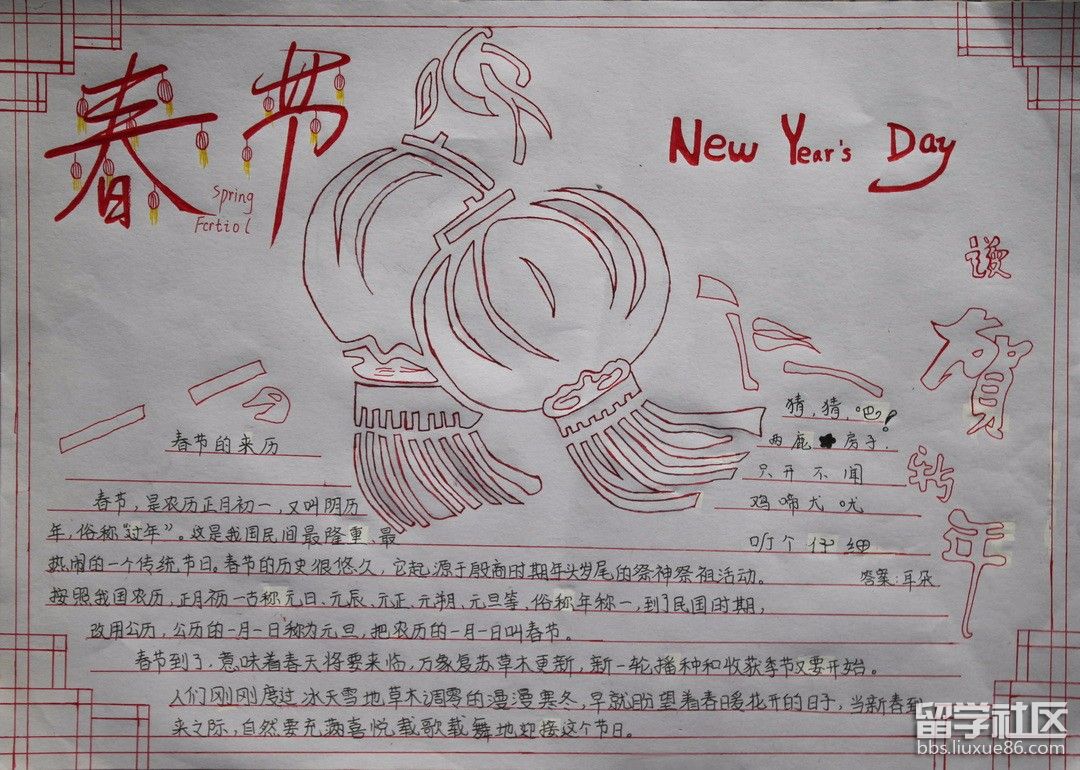 春节
Spring
Fertiol
New Year's Day
谨贺新年
春节的来历
春节，是农历正月初一，又叫阴历
年，俗称"过年"。这是我国民间最隆重、最
热闹的一个传统节日。春节的历史很悠久，它起源于殷商时期年头岁尾的祭神祭祖活动。
按照我国农历，正月初一古称元日、元辰、元正、元朔、元旦等，俗称年称一，到了民国时期，
改用公历，公历的一月一日称为元旦，把农历的一月一日叫春节。
春节到了，意味着春天将要来临，万象复苏草木更新，新一轮播种和收获季节又要开始。
人们刚刚度过冰天雪地草木凋零的漫漫寒冬，早就盼望着春暖花开的日子，当新春到
来之际，自然要充满喜悦载歌载舞地迎接这个节日。
猜，猜，吧！
两鹿 房子，
只开不闻
鸡啼犬吠
听个仔细
答案：耳朵
留学社区
bbs.liuxue86.com